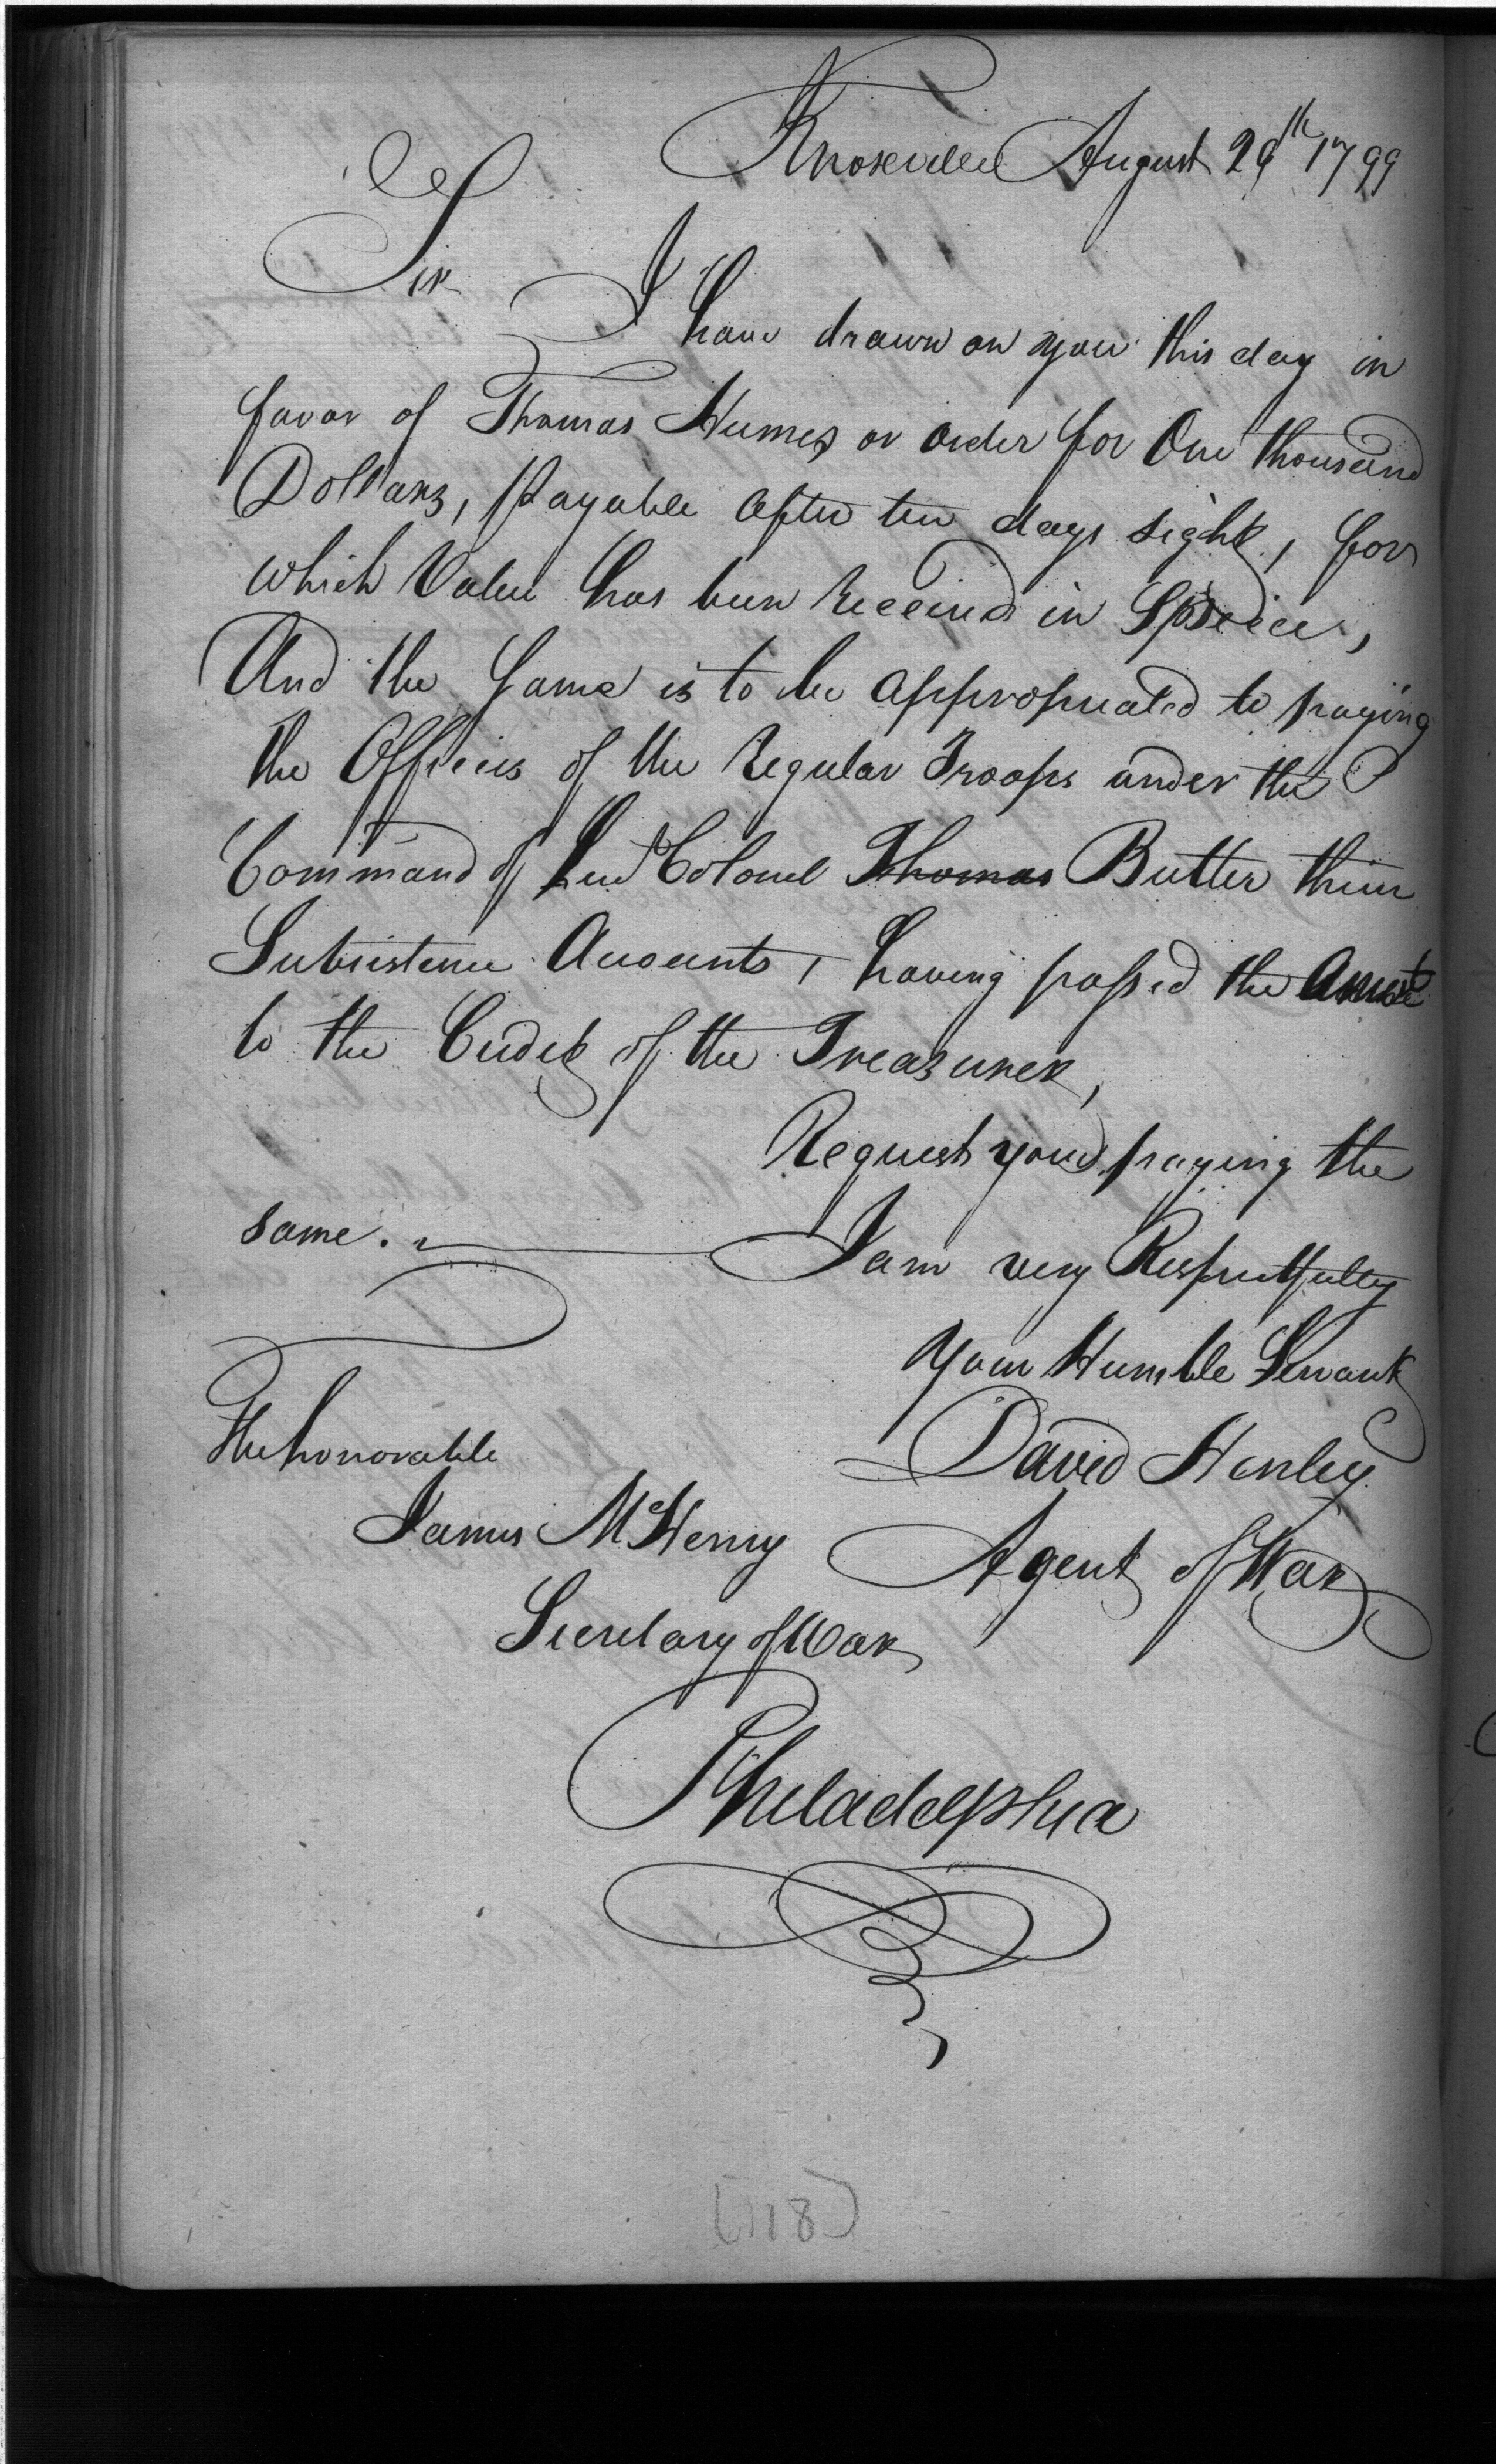 Knoxville August 29th 1799
Sir
I have drawn on you this day in
favor of Thomas Humes or order for One thousand
Dollars, payable after ten days sight, for
which Value has been received in Specie,
And the Same is to be appropriated to paying
the Officers of the Regular Troops under the
Command of Lieut Colonel Thomas Butler their
Subsistence Accounts, having passed the Amot
to the Credit of the Treasurer,
Request your paying the
same.
I am very Respectfully
Your Humble Servant
David Henley
Agent of War
The honorable
James McHenry
Secretary of War
Philadelphia
(118)